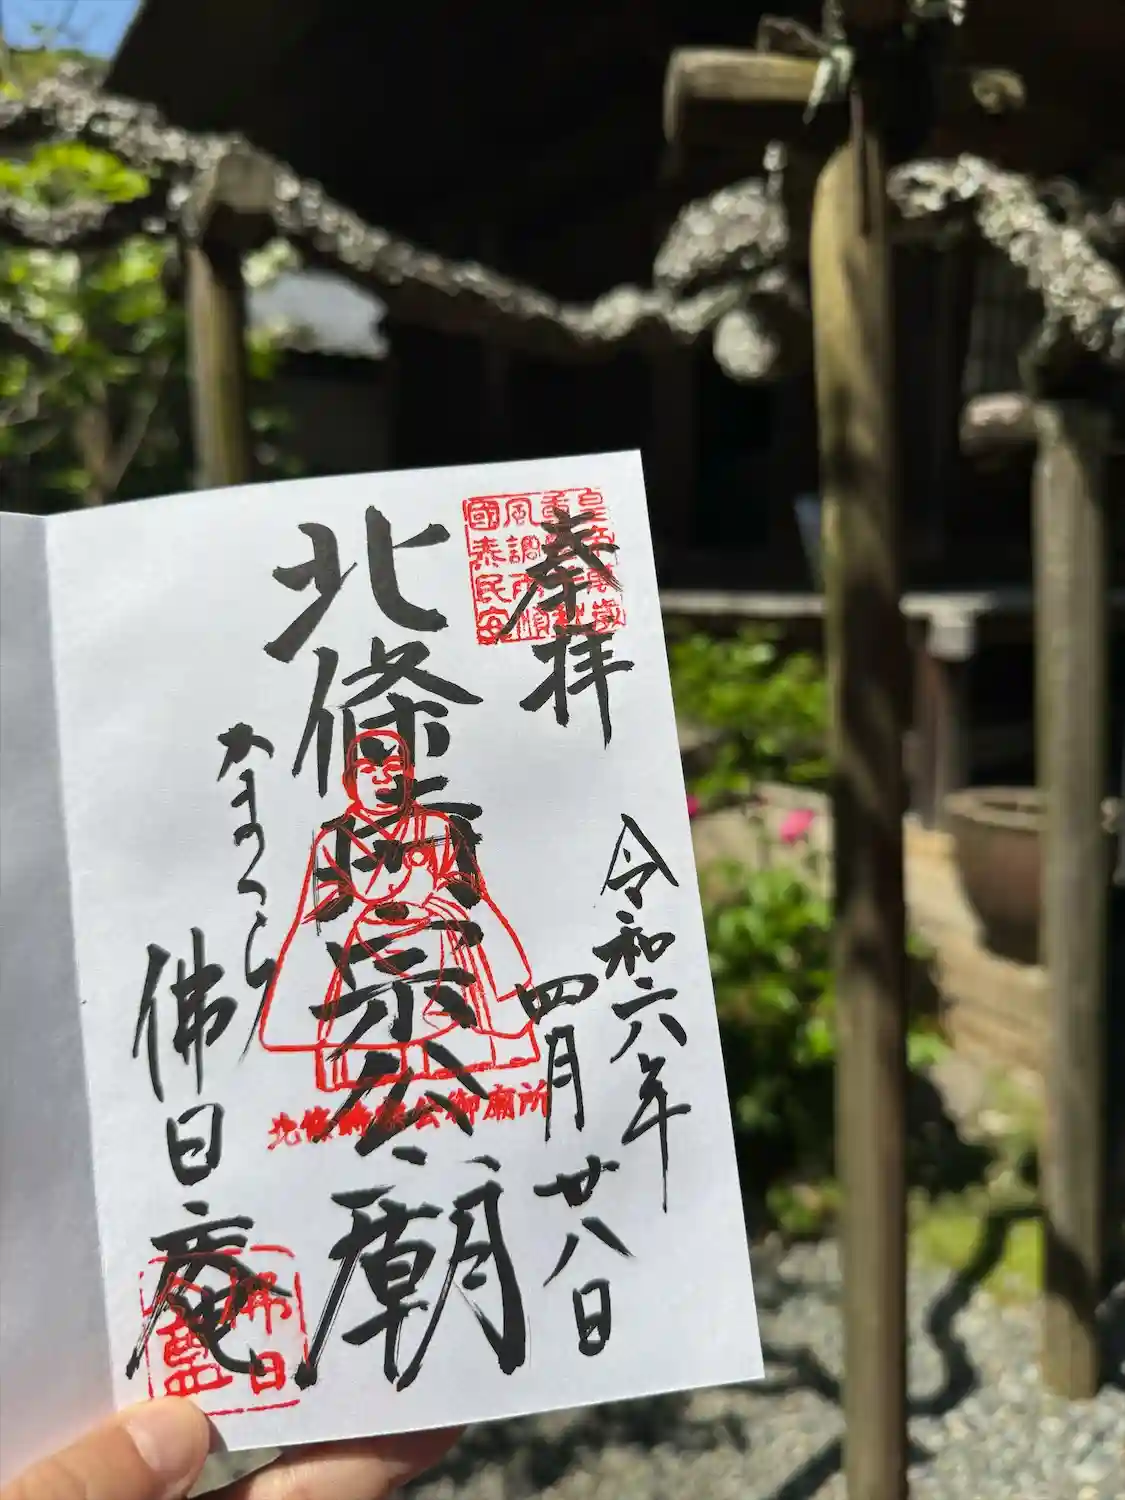 奉拝
皇帝萬歳
重臣千秋
風調雨順
國泰民安
令和六年
四月廿八日
北條時宗公廟
北條時宗公御廟所
かまくら
佛日庵